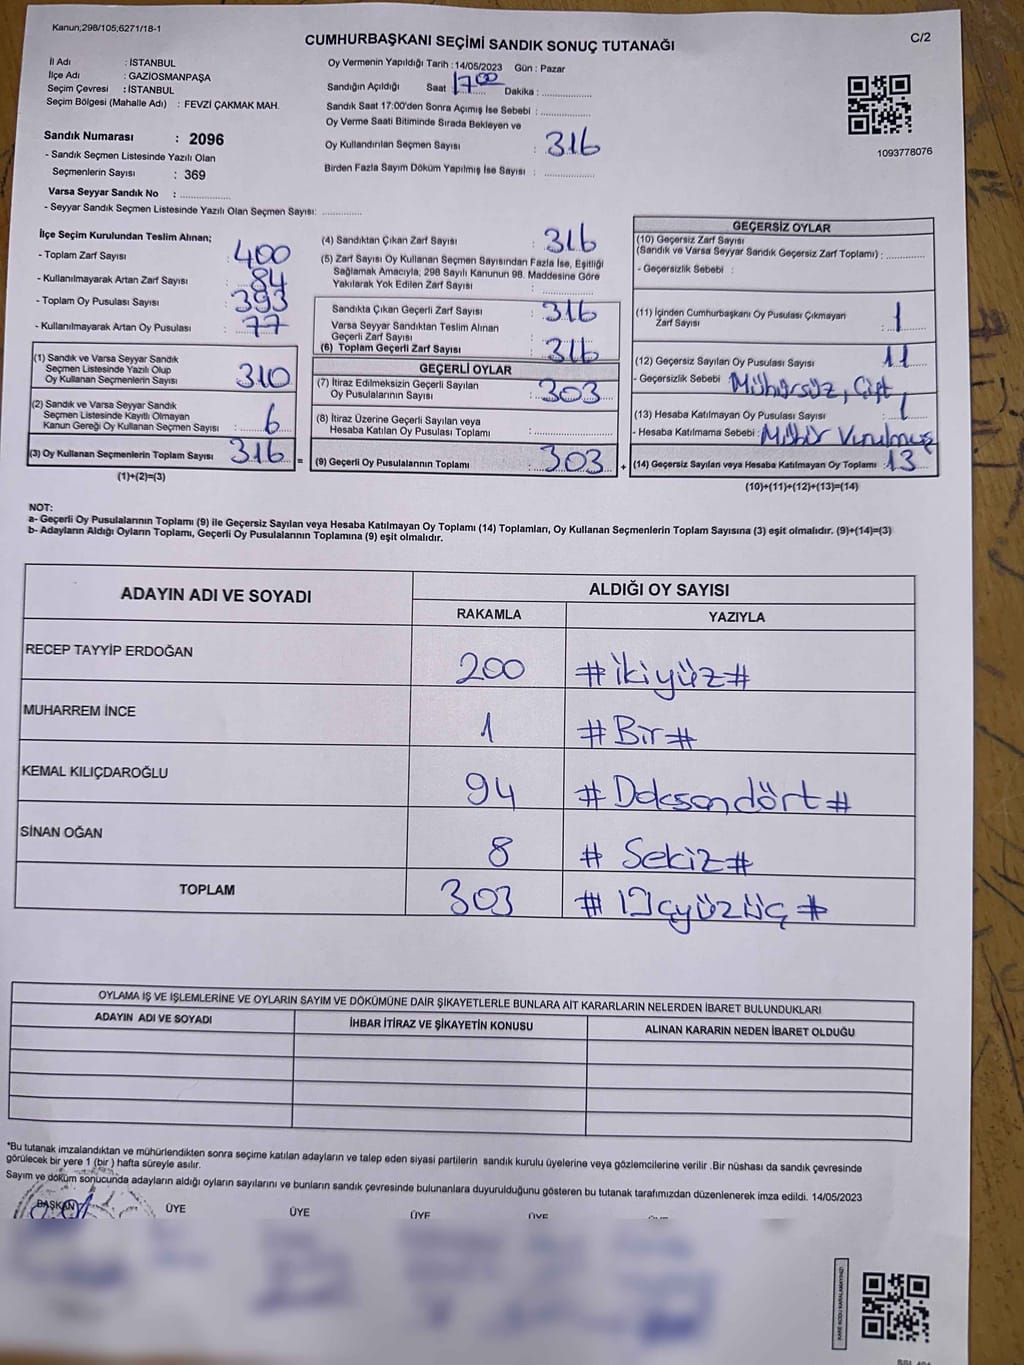 Kanun;298/105;6271/18-1
C/2
CUMHURBAŞKANI SEÇİMİ SANDIK SONUÇ TUTANAĞI
İl Adı : İSTANBUL
İlçe Adı : GAZİOSMANPAŞA
Seçim Çevresi : İSTANBUL
Seçim Bölgesi (Mahalle Adı) : FEVZİ ÇAKMAK MAH.
Sandık Numarası : 2096
- Sandık Seçmen Listesinde Yazılı Olan
Seçmenlerin Sayısı : 369
Varsa Seyyar Sandık No : ..............
- Seyyar Sandık Seçmen Listesinde Yazılı Olan Seçmen Sayısı: ............
Oy Vermenin Yapıldığı Tarih : 14/05/2023 Gün : Pazar
Sandığın Açıldığı Saat 17:00 Dakika : ..............
Sandık Saat 17:00'den Sonra Açımış İse Sebebi : ..............
Oy Verme Saati Bitiminde Sırada Bekleyen ve
Oy Kullandırılan Seçmen Sayısı : 316
Birden Fazla Sayım Döküm Yapılmış İse Sayısı : ..............
1093778076
İlçe Seçim Kurulundan Teslim Alınan;
- Toplam Zarf Sayısı : 400
- Kullanılmayarak Artan Zarf Sayısı : 84
- Toplam Oy Pusulası Sayısı : 393
- Kullanılmayarak Artan Oy Pusulası : 77
(1) Sandık ve Varsa Seyyar Sandık
Seçmen Listesinde Yazılı Olup
Oy Kullanan Seçmenlerin Sayısı : 310
(2) Sandık ve Varsa Seyyar Sandık
Seçmen Listesinde Kayıtlı Olmayan
Kanun Gereği Oy Kullanan Seçmen Sayısı : 6
(3) Oy Kullanan Seçmenlerin Toplam Sayısı : 316
(1)+(2)=(3)
(4) Sandıktan Çıkan Zarf Sayısı : 316
(5) Zarf Sayısı Oy Kullanan Seçmen Sayısından Fazla İse, Eşitliği
Sağlamak Amacıyla, 298 Sayılı Kanunun 98. Maddesine Göre
Yakılarak Yok Edilen Zarf Sayısı : ..............
Sandıkta Çıkan Geçerli Zarf Sayısı : 316
Varsa Seyyar Sandıktan Teslim Alınan
Geçerli Zarf Sayısı : ..............
(6) Toplam Geçerli Zarf Sayısı : 316
GEÇERLİ OYLAR
(7) İtiraz Edilmeksizin Geçerli Sayılan
Oy Pusulalarının Sayısı : 303
(8) İtiraz Üzerine Geçerli Sayılan veya
Hesaba Katılan Oy Pusulası Toplamı : ..............
= (9) Geçerli Oy Pusulalarının Toplamı : 303 +
GEÇERSİZ OYLAR
(10) Geçersiz Zarf Sayısı
(Sandık ve Varsa Seyyar Sandık Geçersiz Zarf Toplamı) : ..............
- Geçersizlik Sebebi :
(11) İçinden Cumhurbaşkanı Oy Pusulası Çıkmayan
Zarf Sayısı : 1
(12) Geçersiz Sayılan Oy Pusulası Sayısı : 11
- Geçersizlik Sebebi : Mühürsüz, Çift
(13) Hesaba Katılmayan Oy Pusulası Sayısı : 1
- Hesaba Katılmama Sebebi : Mühür Vurulmuş
(14) Geçersiz Sayılan veya Hesaba Katılmayan Oy Toplamı : 13
(10)+(11)+(12)+(13)=(14)
NOT:
a- Geçerli Oy Pusulalarının Toplamı (9) ile Geçersiz Sayılan veya Hesaba Katılmayan Oy Toplamı (14) Toplamları, Oy Kullanan Seçmenlerin Toplam Sayısına (3) eşit olmalıdır. (9)+(14)=(3)
b- Adayların Aldığı Oyların Toplamı, Geçerli Oy Pusulalarının Toplamına (9) eşit olmalıdır.
ADAYIN ADI VE SOYADI
ALDIĞI OY SAYISI
RAKAMLA YAZIYLA
RECEP TAYYİP ERDOĞAN 200 #ikiyüz#
MUHARREM İNCE 1 #Bir#
KEMAL KILIÇDAROĞLU 94 #Doksandört#
SİNAN OĞAN 8 # Sekiz#
TOPLAM 303 # Üçyüzüç #
OYLAMA İŞ VE İŞLEMLERİNE VE OYLARIN SAYIM VE DÖKÜMÜNE DAİR ŞİKAYETLERLE BUNLARA AİT KARARLARIN NELERDEN İBARET BULUNDUKLARI
ADAYIN ADI VE SOYADI İHBAR İTİRAZ VE ŞİKAYETİN KONUSU ALINAN KARARIN NEDEN İBARET OLDUĞU
*Bu tutanak imzalandıktan ve mühürlendikten sonra seçime katılan adayların ve talep eden siyasi partilerin sandık kurulu üyelerine veya gözlemcilerine verilir .Bir nüshası da sandık çevresinde
görülecek bir yere 1 (bir ) hafta süreyle asılır.
Sayım ve döküm sonucunda adayların aldığı oyların sayılarını ve bunların sandık çevresinde bulunanlara duyurulduğunu gösteren bu tutanak tarafımızdan düzenlenerek imza edildi. 14/05/2023
BAŞKAN ÜYE ÜYE ÜYE ÜYE